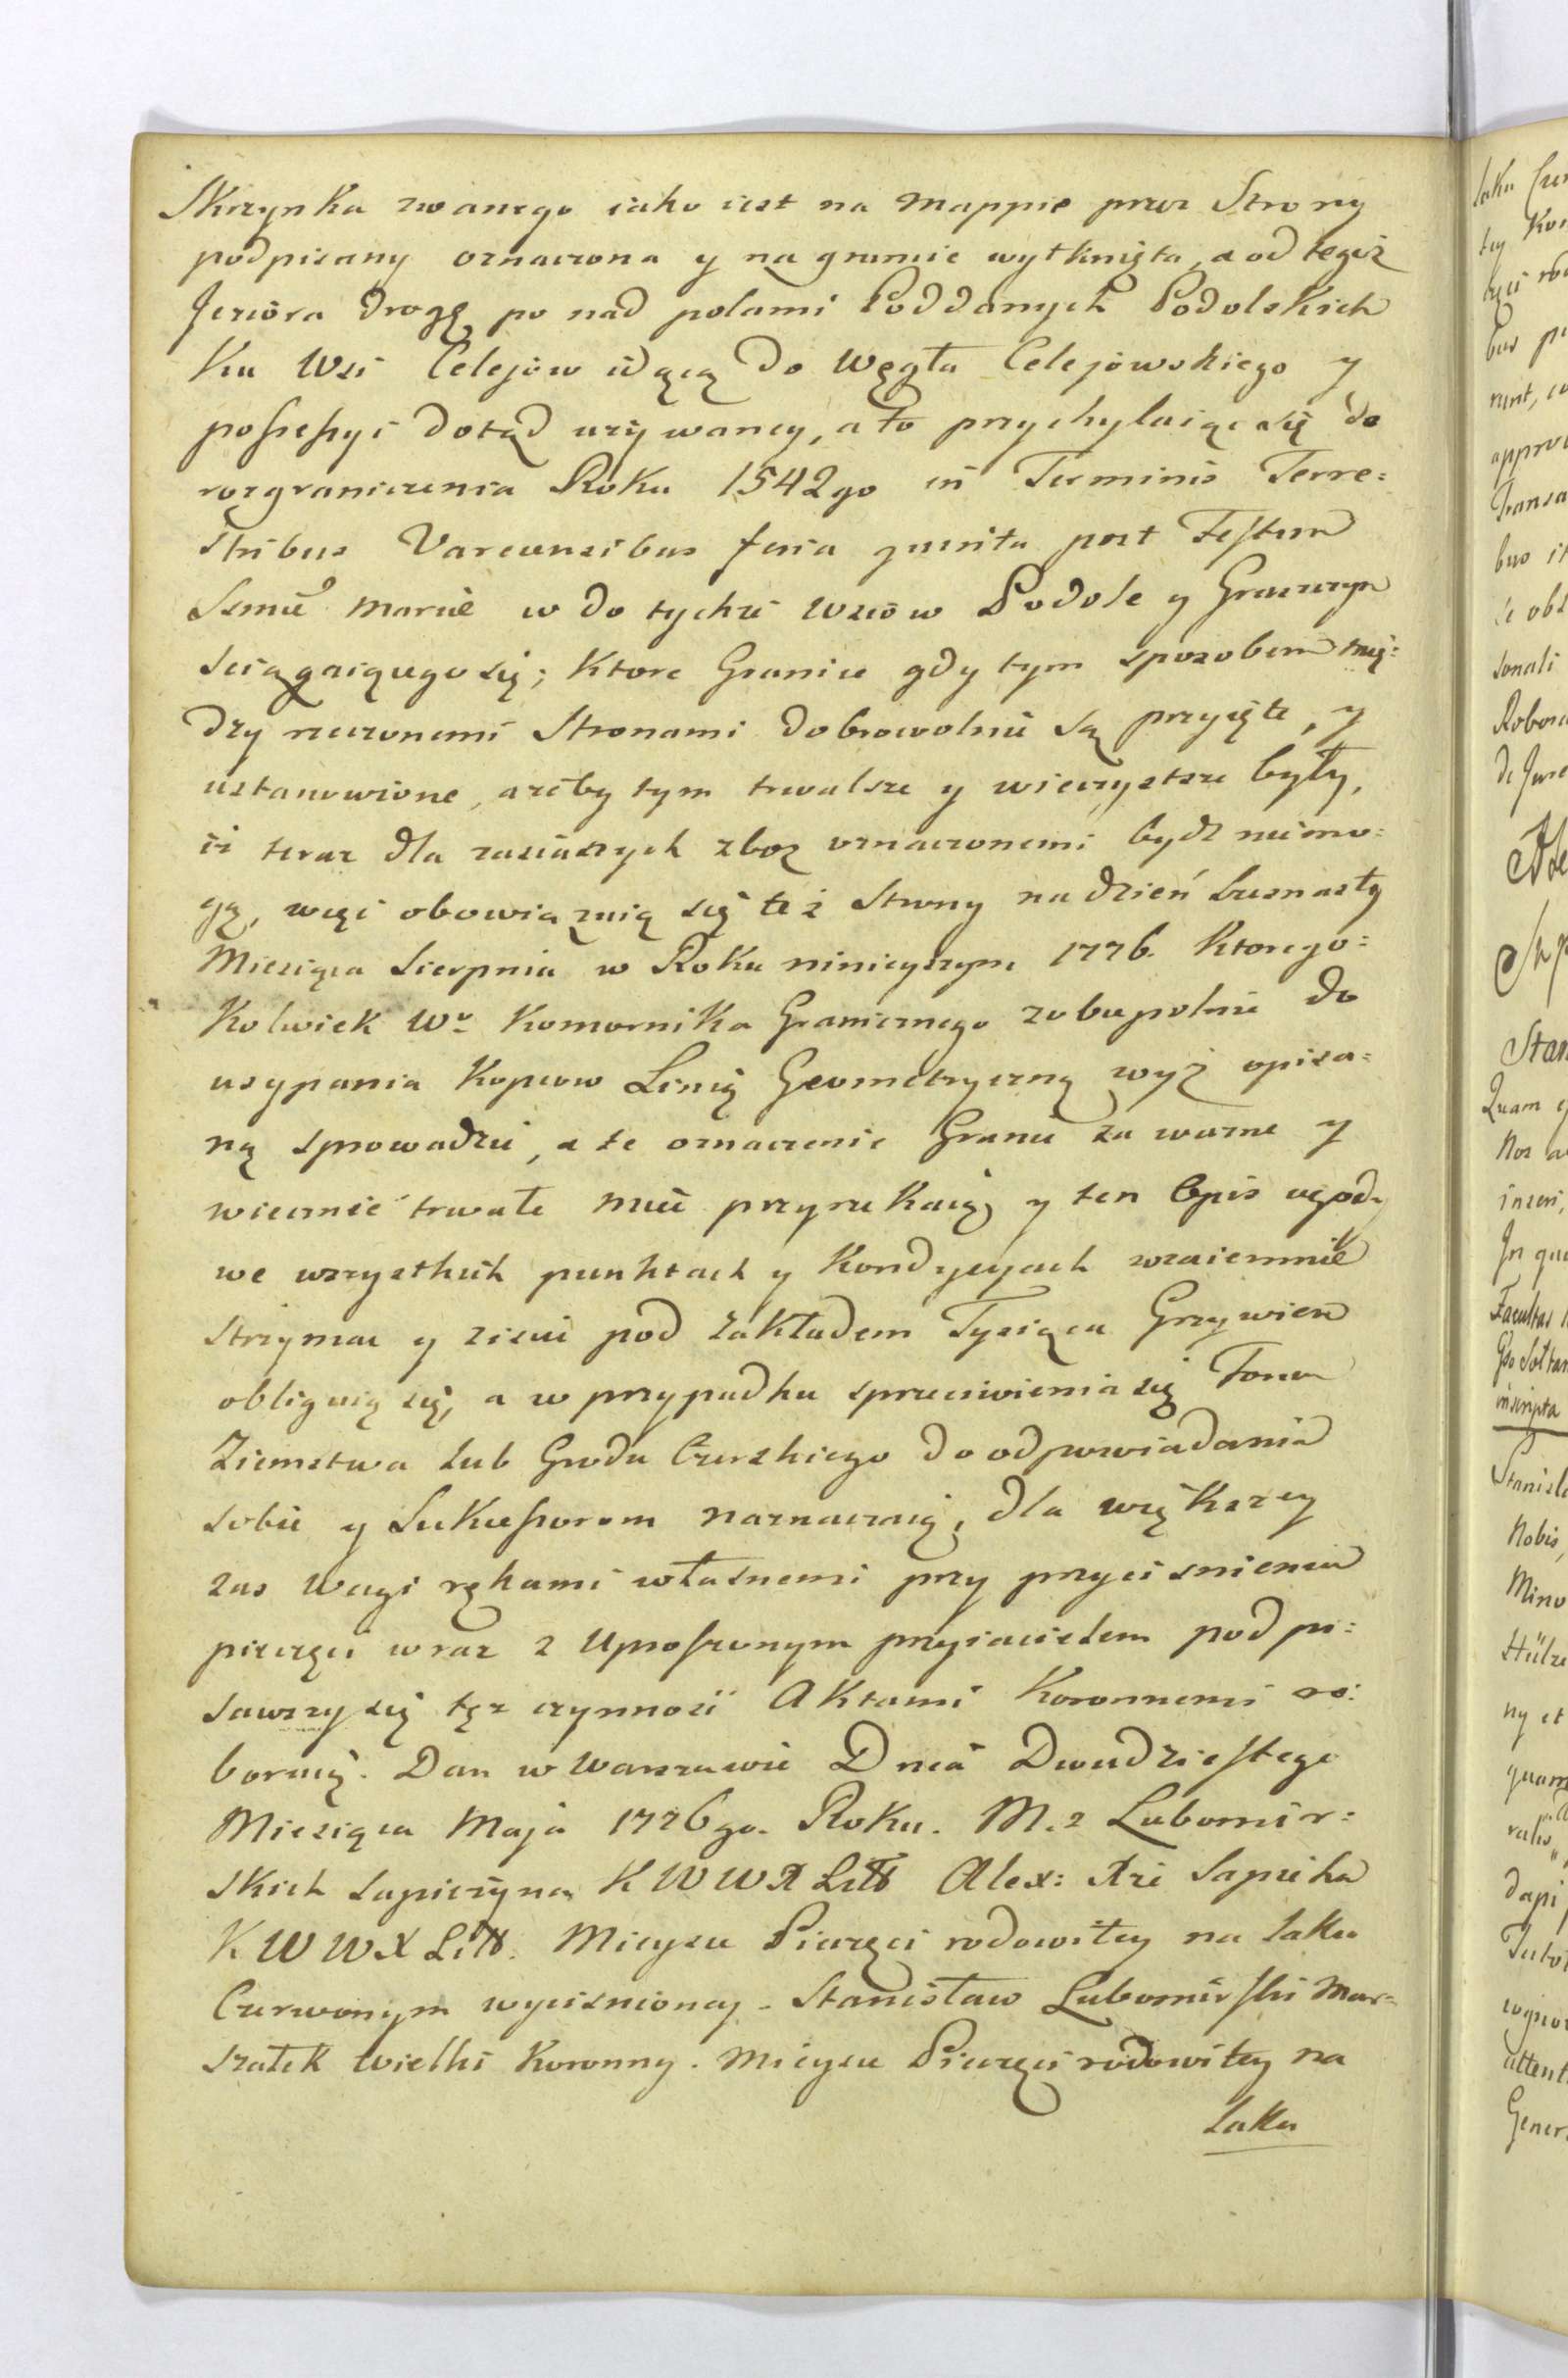 Skrzynka zwanego iako iest na Mappie przez Strony
podpisany oznaczona y na gruncie wytknięta, a od tegoż
Jeziora drogę po nad polami Poddanych Podolskich
Ku Wsi Celejow idącą do Węgła Celejowskiego y
possessyi dotąd używaney, a to przychylaiąc się do
rozgraniczenia Roku 1542go in Terminis Terre:
stribus Varecensibus feria quinta post Festum
Ssmæ Mariæ w do tychże Wsiów Podole y
sciągaiącego się; Ktore Granice gdy tym sposobem mię:
dzy rzeczonemi Stronami dobrowolnie są przyięte, y
ustanowione, ażeby tym trwalsze y wieczystsze były,
iż teraz dla zasianych zboz oznaczonemi bydz niemo:
gą, więc obowiązuią się też Strony na dzień szesnasty
Miesiąca Sierpnia w Roku ninieyszym 1776. Ktorego:
Kolwiek Wo Komornika Granicznego zobupolnie do
usypania Kopcow Linią Geometryczną wyż opisa:
ną sprowadzić, a te oznaczenie Granic za wazne y
wiecznie trwałe mieć przyrzekaią, y ten Opis ugody
we wszystkich punktach y Kondycyach wzaiemnie
strzymac y ziscić pod zakładem Tysiąca Grzywien
obliguią się, a w przypadku sprzeciwienia się Forum
Ziemstwa lub Grodu Czerskiego do odpowiadania
sobie y Sukcessorom naznaczaią, dla większey
zas Wagi rękami własnemi przy przycisnieniu
pieczęci wraz z Uproszonym przyiacielem podpi:
sawszy się tęż czynność Aktami Koronnemi ro:
boruią. Dan w Warszawie Dnia Dwudziestego
Miesiąca Maja 1776go. Roku. M. z Lubomir:
skich Sapieżyna K W W X Litt Alex: Xże Sapieha
K W W X Litt. Mieysce Pieczęci rodowitey na laku
Czerwonym wycisnioney - Stanisław Lubomirski Mar:
szałek Wielki Koronny. Mieysce Pieczęci rodowitey na
laku